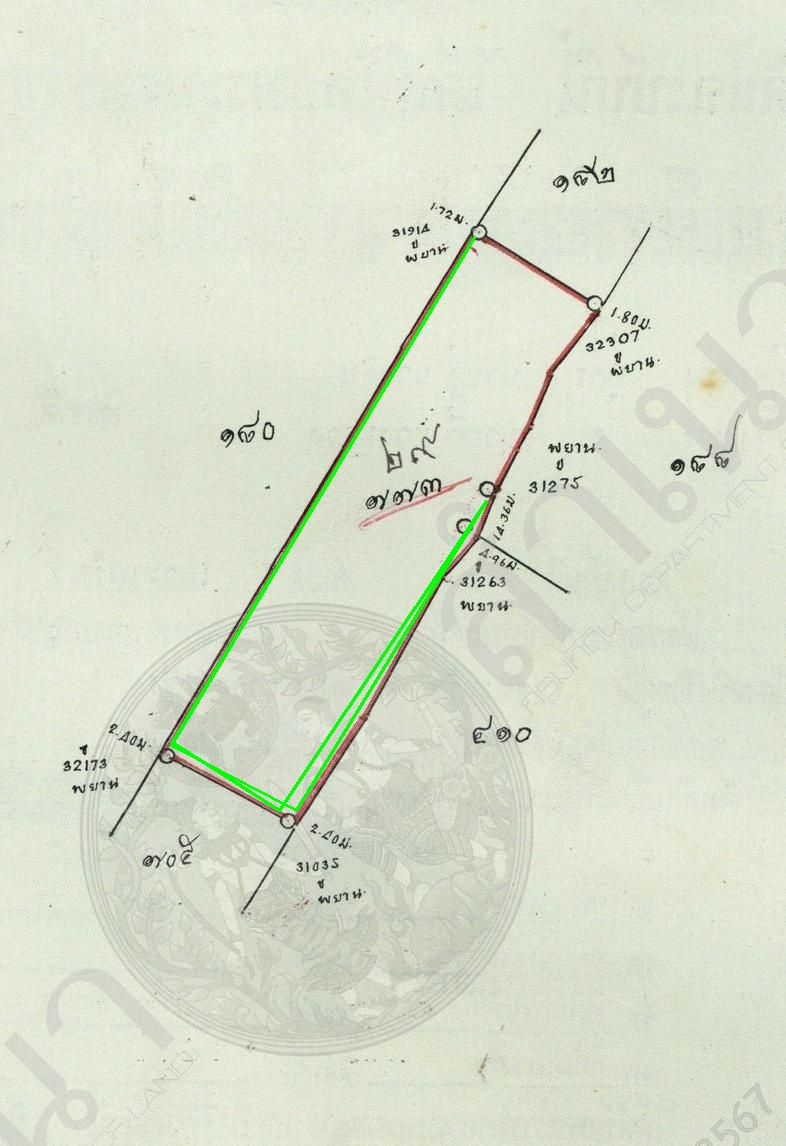 ๑๘๒
1.72ม.
31914
ข
พยาน
1.80ม.
32307
ข
พยาน
๑๘๐
๗๗๓
พยาน
ข
31275
๑๘๘
14.36ม.
4.96ม.
ข
31263
พยาน
๔๑๐
2.40ม.
ข
32173
พยาน
๗๐๕
2.40ม.
31035
ข
พยาน
สำเนา
กรมที่ดิน DEPARTMENT
OF LAND
2567